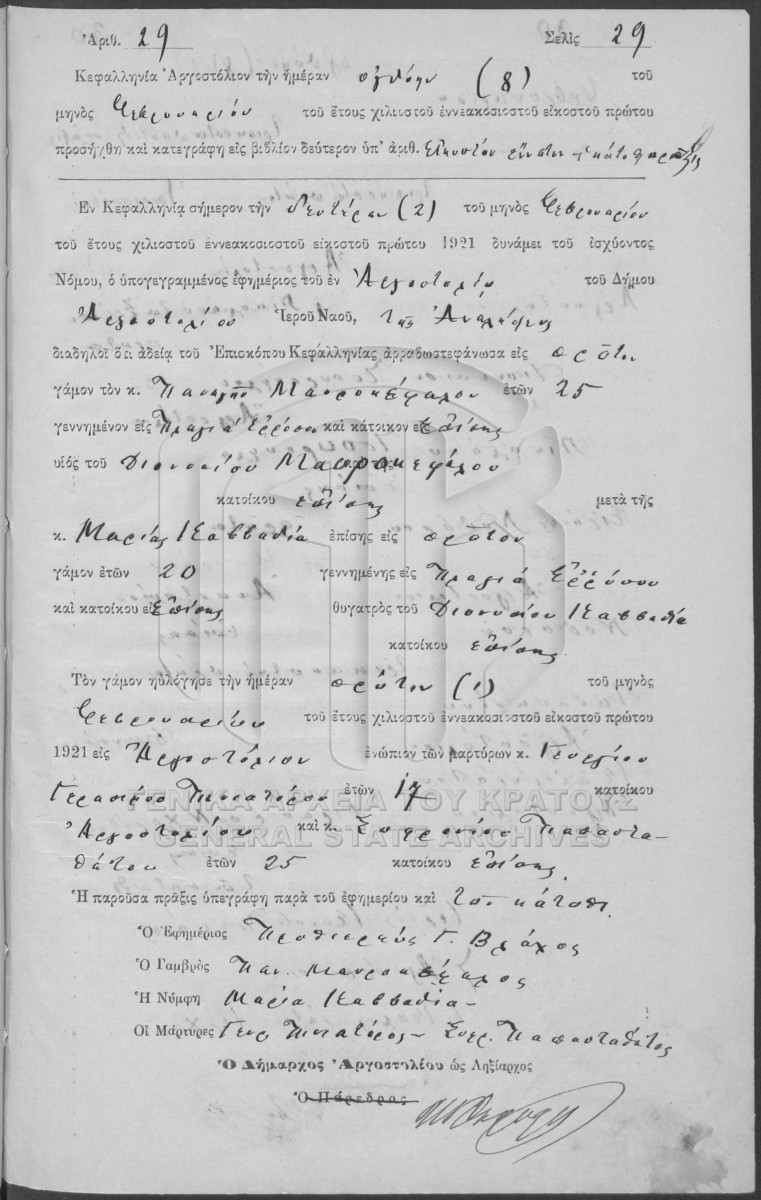 Ἀριθ. 29 Σελὶς 29
Κεφαλληνία Ἀργοστόλιον τὴν ἡμέραν ὀγδόην (8) τοῦ
μηνὸς Φεβρουαρίου τοῦ ἔτους χιλιοστοῦ ἐννεακοσιοστοῦ εἰκοστοῦ πρώτου
προσήχθη καὶ κατεγράφη εἰς βιβλίον δεύτερον ὑπ' ἀριθ. εἰκοστὸν ἔννατον ἡ κάτωθι πρᾶξις
Ἐν Κεφαλληνίᾳ σήμερον τὴν Δευτέραν (2) τοῦ μηνὸς Φεβρουαρίου
τοῦ ἔτους χιλιοστοῦ ἐννεακοσιοστοῦ εἰκοστοῦ πρώτου 1921 δυνάμει τοῦ ἰσχύοντος
Νόμου, ὁ ὑπογεγραμμένος ἐφημέριος τοῦ ἐν Ἀργοστολίῳ τοῦ Δήμου
Ἀργοστολίου Ἱεροῦ Ναοῦ, τῆς Ἀναλήψεως
διαδηλοῖ ὅτι ἀδείᾳ τοῦ Ἐπισκόπου Κεφαλληνίας ἀρραβωστεφάνωσα εἰς πρῶτον
γάμον τὸν κ. Παναγῆν Μαυροκέφαλον ἐτῶν 25
γεννημένον εἰς Πλαγιὰ Ἐρύσου καὶ κάτοικον εἰς ἐπίσης
υἱὸς τοῦ Διονυσίου Μαυροκεφάλου
κατοίκου ἐπίσης μετὰ τῆς
κ. Μαρίας Καββαδία ἐπίσης εἰς πρῶτον
γάμον ἐτῶν 20 γεννημένης εἰς Πλαγιὰ Ἐρύσου
καὶ κατοίκου εἰς ἐπίσης θυγατρὸς τοῦ Διονυσίου Καββαδία
κατοίκου ἐπίσης
Τὸν γάμον ηὐλόγησε τὴν ἡμέραν πρώτην (1) τοῦ μηνὸς
Φεβρουαρίου τοῦ ἔτους χιλιοστοῦ ἐννεακοσιοστοῦ εἰκοστοῦ πρώτου
1921 εἰς Ἀργοστόλιον ἐνώπιον τῶν μαρτύρων κ. Γεωργίου
Γερασίμου Πινιατόρου ἐτῶν 17 κατοίκου
Ἀργοστολίου καὶ κ. Παπαστα-
θάτου ἐτῶν 25 κατοίκου ἐπίσης.
Ἡ παροῦσα πρᾶξις ὑπεγράφη παρὰ τοῦ ἐφημερίου καὶ τῶν κάτωθι.
Ὁ Ἐφημέριος Πρωθιερεὺς Γ. Βλάχος
Ὁ Γαμβρὸς Παν. Μαυροκέφαλος
Ἡ Νύμφη Μαρία Καββαδία
Οἱ Μάρτυρες Γεωρ. Πινιατόρος – Σπυρ. Παπασταθάτος
Ὁ Δήμαρχος Ἀργοστολίου ὡς Ληξίαρχος
Ὁ Πάρεδρος
ΓΕΝΙΚΑ ΑΡΧΕΙΑ ΤΟΥ ΚΡΑΤΟΥΣ
GENERAL STATE ARCHIVES